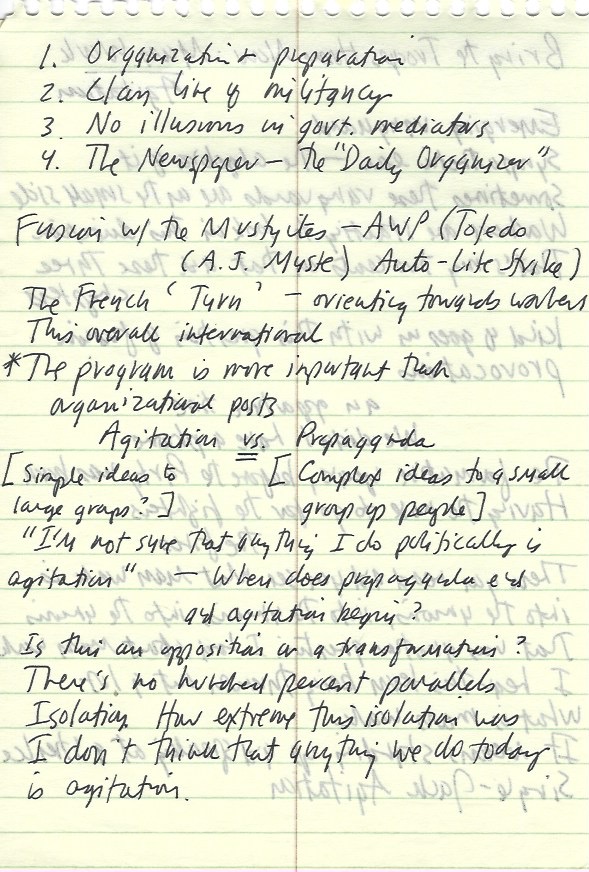 1. Organization & preparation
2. Clear line of militancy
3. No illusions in govt. mediators
4. The Newspaper — the "Daily Organizer"
Fusion w/ the Musteyites — AWP (Toledo
(A.J. Muste) Auto-Lite Strike)
The French 'Turn' — orienting towards workers
This overall international
*The program is more important than
organizational posts
Agitation vs. Propaganda
[Simple ideas to [Complex ideas to a small
large groups?] group of people]
"I'm not sure that anything I do politically is
agitation" — When does propaganda end
and agitation begin?
Is this an opposition or a transformation?
There's no hundred percent parallels
Isolation. How extreme this isolation was
I don't think that anything we do today
is agitation.